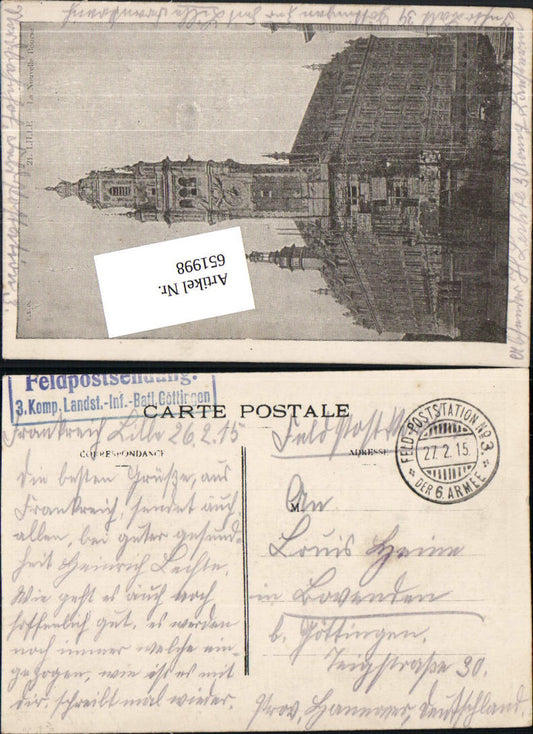 21. LILLE La Nouvelle Bourse
Artikel Nr.
651998
Feldpostsendung.
3. Komp. Landst.-Inf.-Batl. Göttingen
CARTE POSTALE
CORRESPONDANCE
ADRESSE
FELD-POSTSTATION No 3
27. 2. 15.
DER 6. ARMEE
Frankreich Lille 26.2.15
Die besten Grüße, aus
Frankreich, sendet auch
allen, bei guter gesund-
heit Heinrich Lechte.
Wie geht es auch noch
hoffenlich gut, es werden
noch immer welche ein-
gezogen, wie ist es mit
dir, schreibt mal wieder.
Feldpost
M.
An
Louis Heine
in Bovenden
b. Göttingen.
Teigstraße 30.
Prov. Hannover, Deutschland.